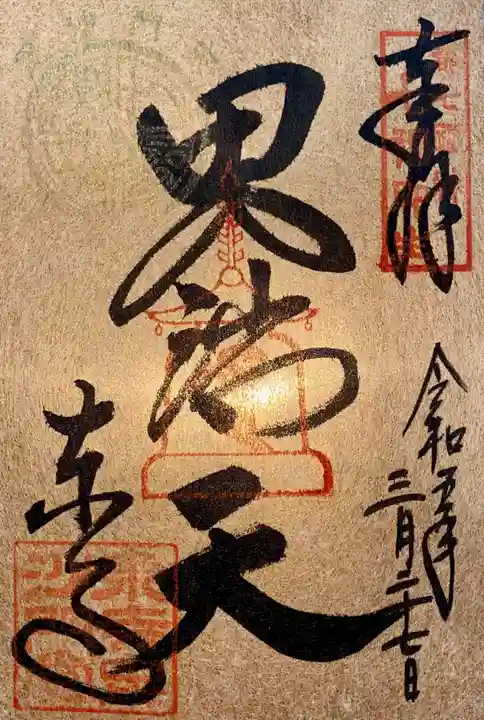 奉拝
令和五年
三月二十七日
毘沙門天
東寺